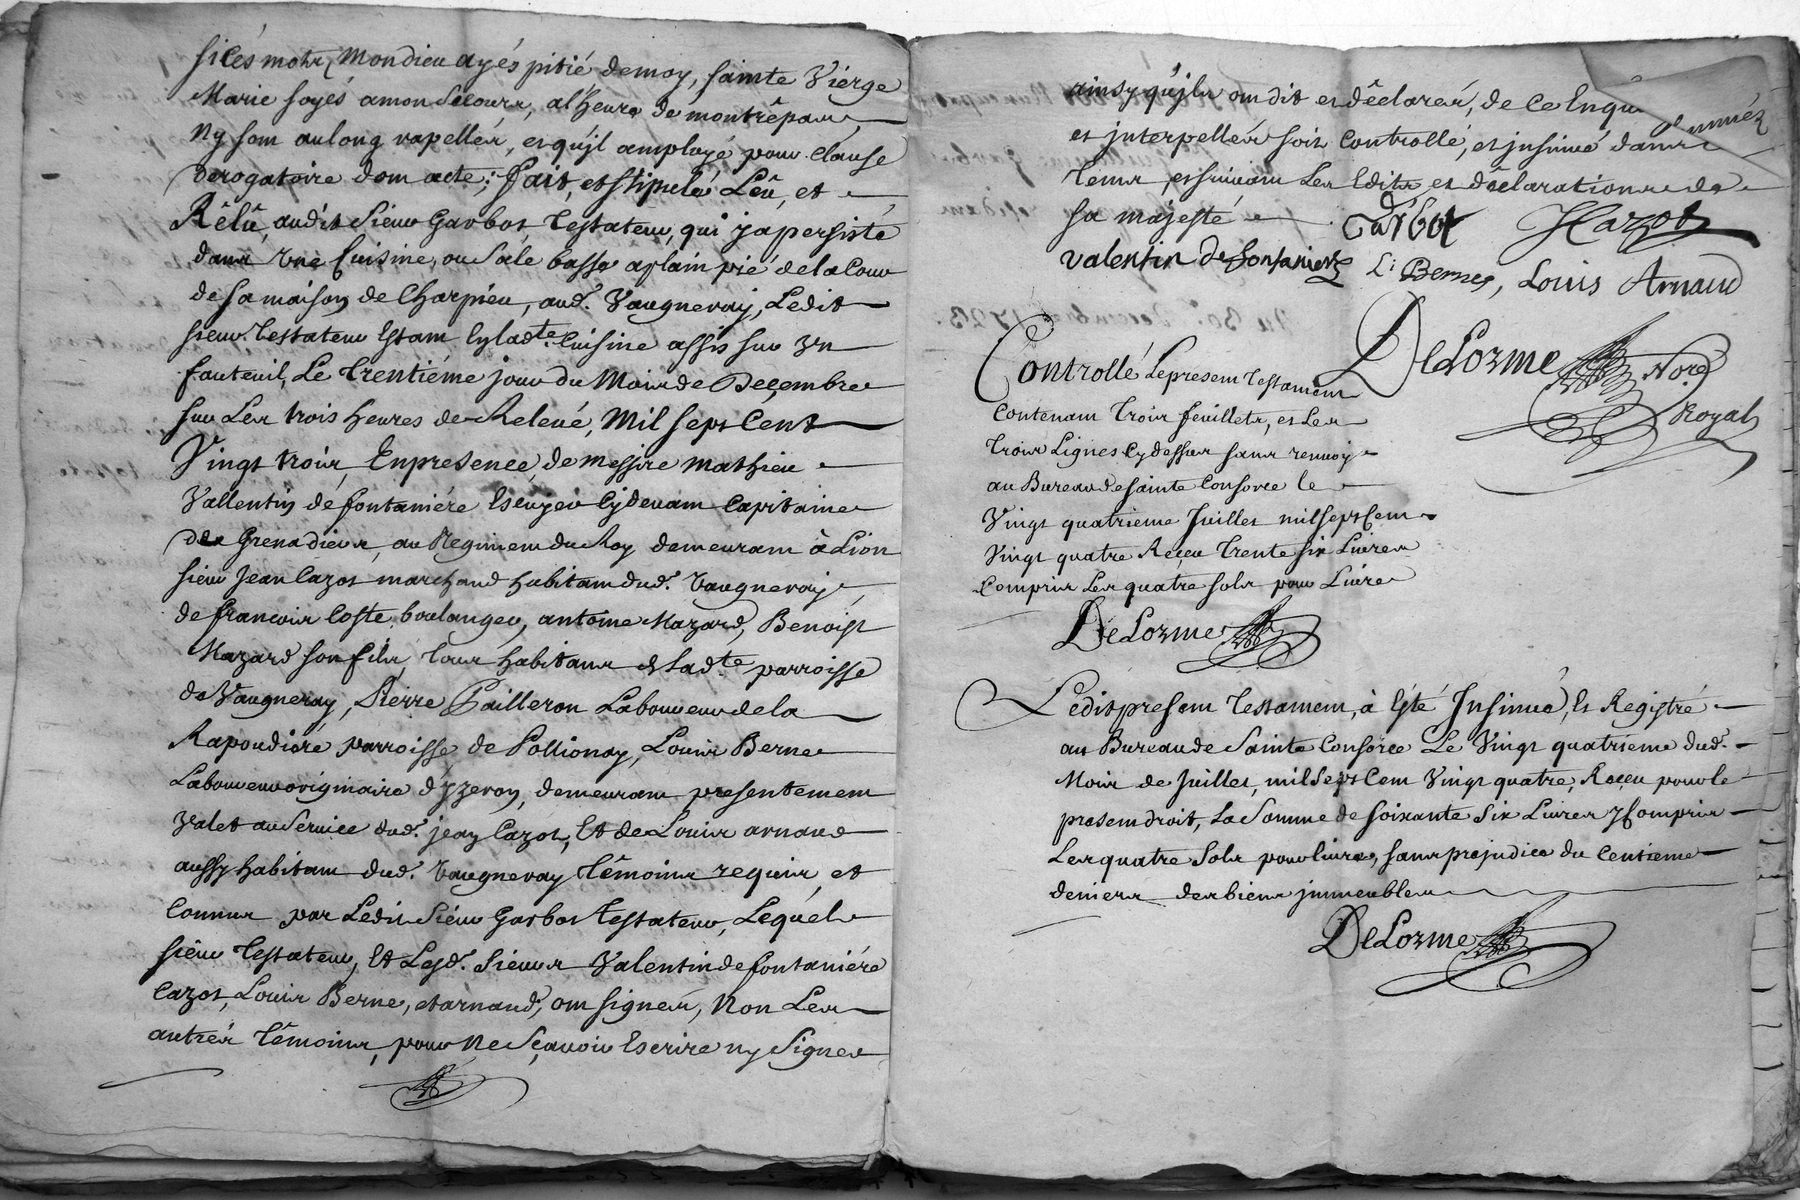 si cés mots, Mon dieu ayés pitié de moy, sainte Vierge
Marie soyés a mon Secours, a l'heure de mon trêpas,
Ny som au long rapellés, et quil amployé pour clause
Derogatoire dom acte; fait, et stipulé Leû, et
Rêlû, audit Sieur Garbot, Testateur, qui y a persisté
dans une Cuisine, ou Sale basse a plain pié de la Cour
de sa maison de Charpieu, aud. Vaugneray, Ledit
sieur Testateur Estam En lad.te Cuisine assis sur Un
fauteuil, Le Trentiéme jour du Mois de Decembre
sur Les trois heures de Relevé, Mil sept Cent
Vingt trois, En presence, de messire mathieu
Vallentin de fontaniére Escuyer Cy devam Capitaine
des Grenadiers, au Regimem du Roy demeuram à Lion
sieur Jean Cazot marchand habitam dud. Vaugneray,
de francois Coste boulanger, antoine Mazard, Benoist
Mazard son fils, tous habitans de Lad.te parroisse
de Vaugneray, Pierre Pailleron Laboureur de la
Rapoudiére parroisse de Pollionay, Louis Berne
Laboureur originaire d'Yzeron, demeuram presentemem
Valet au Service dud. jean Cazot, Et de Louis arnaud
aussy habitam dud. Vaugneray Têmoins requis, et
Connus par Ledit Siéur Garbot Testateur, Lequel
sieur Testateur, Et Lesd. Sieurs Valentin de fontaniére
Cazot, Louis Berne, et arnaud, om signés, Non Les
autrés têmoins, pour Ne Sçavoir Escrire ny Signer
ainsy qu'jls om dit et dêclarés, de ce Enquis
et jnterpellés soit Controllé, et jnsinué dans
tems, et suivam Les Edits et dêclarations de
sa majesté
Garbot Cazot
valentin de fontaniere L: Berne, Louis Arnaud
DeLorme No.re
Royal
Controllé Le presem Testamem
Contenam Trois feuillets, et Les
Trois Lignes Cy dessus sans renvoy
au Bureau de sainte Consorce le
Vingt quatrieme Juillet mil sept Cem
Vingt quatre Reçeu Trente six Livres
Compris Les quatre sols pour Livre
DeLorme
Ledit presem Testamem, à Esté Insinué, Et Registré
au Bureau de Sainte Consorce Le Vingt quatrieme dud.
Mois de Juillet, mil Sept Cem Vingt quatre, Reçeu pour le
presem droit, La Somme de soixante Six Livres y Compris
Les quatre Sols pour livre, sans prejudice du Centieme
deniers des biens jmmeubles
DeLorme